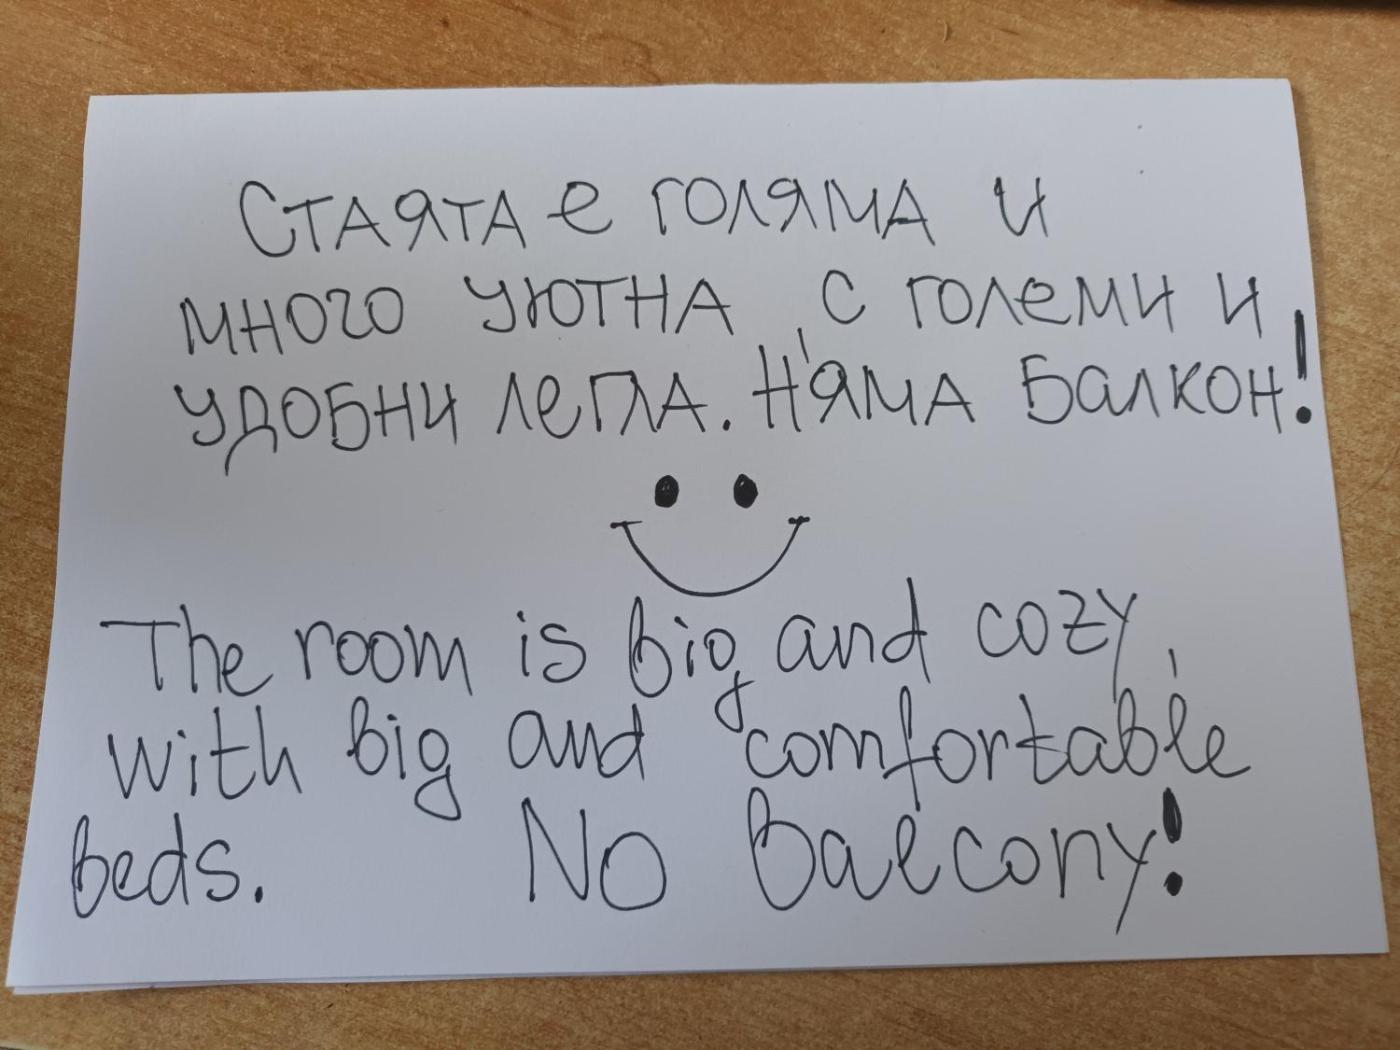 Стаята е голяма и
много уютна, с големи и
удобни легла. Няма балкон!
The room is big and cozy,
with big and comfortable
beds. No balcony!